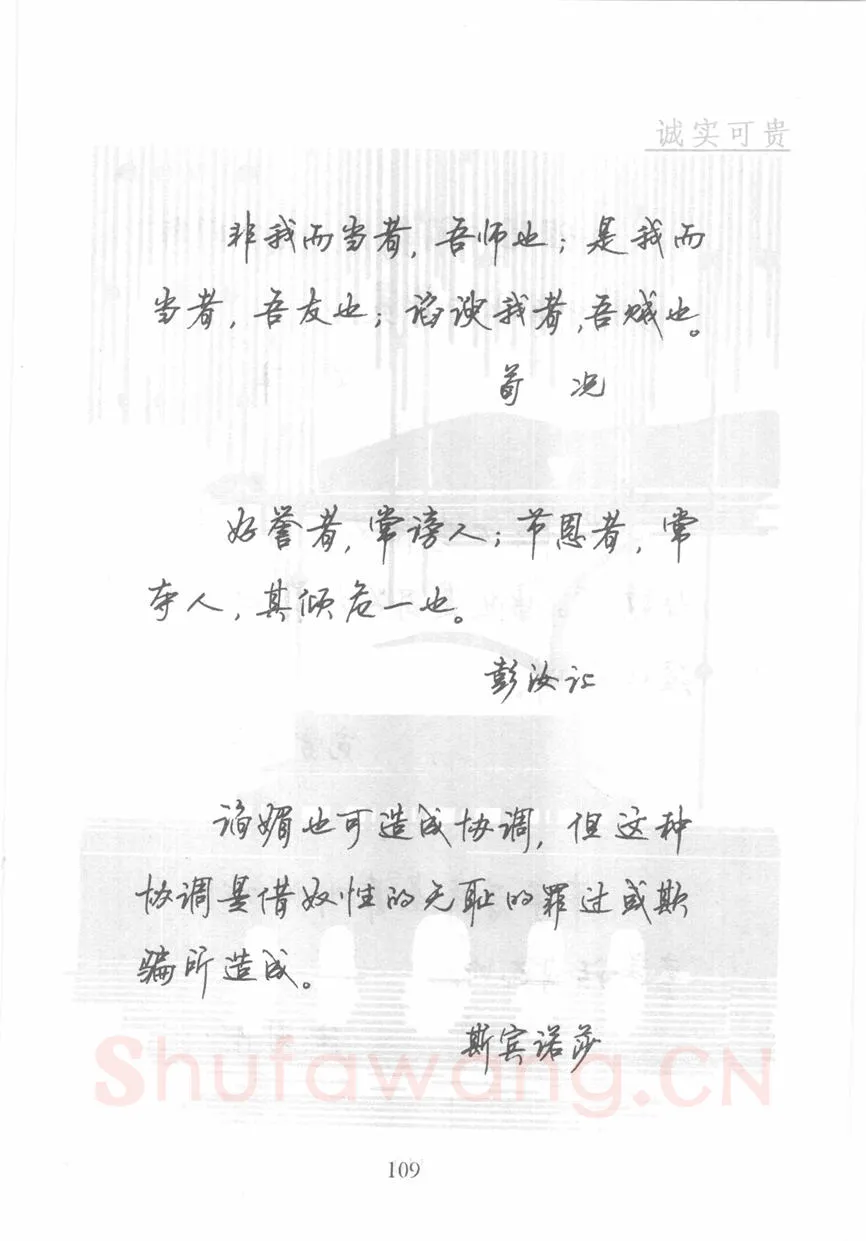 诚实可贵
非我而当者，吾师也；是我而
当者，吾友也；谄谀我者，吾贼也。
荀 况
好誉者，常谤人；市恩者，常
夺人，其倾危一也。
彭汝让
谄媚也可造成协调，但这种
协调是借奴性的无耻的罪过或欺
骗所造成。
斯宾诺莎
Shufawang.CN
109